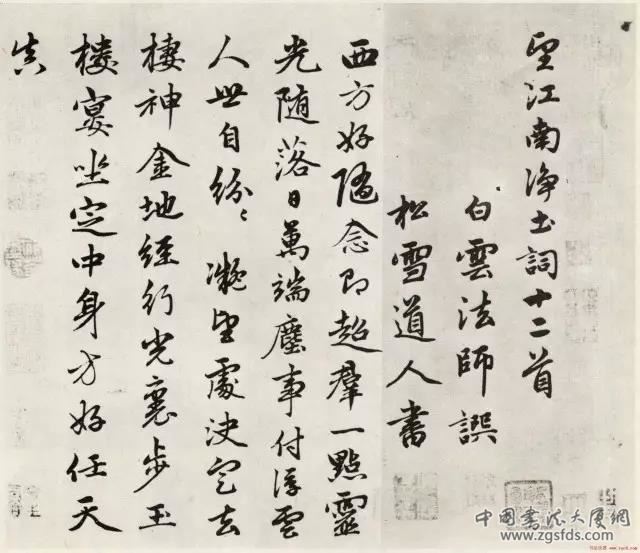 望江南淨土詞十二首
白雲法師譔
松雪道人書
西方好隨念即超羣一點靈
光随落日萬端塵事付浮雲
人世自紛〻凝望處決定去
棲神金地經行光裏步玉
樓宴坐定中身方好任天
真
中國書法大厦網
www.zgsfds.com